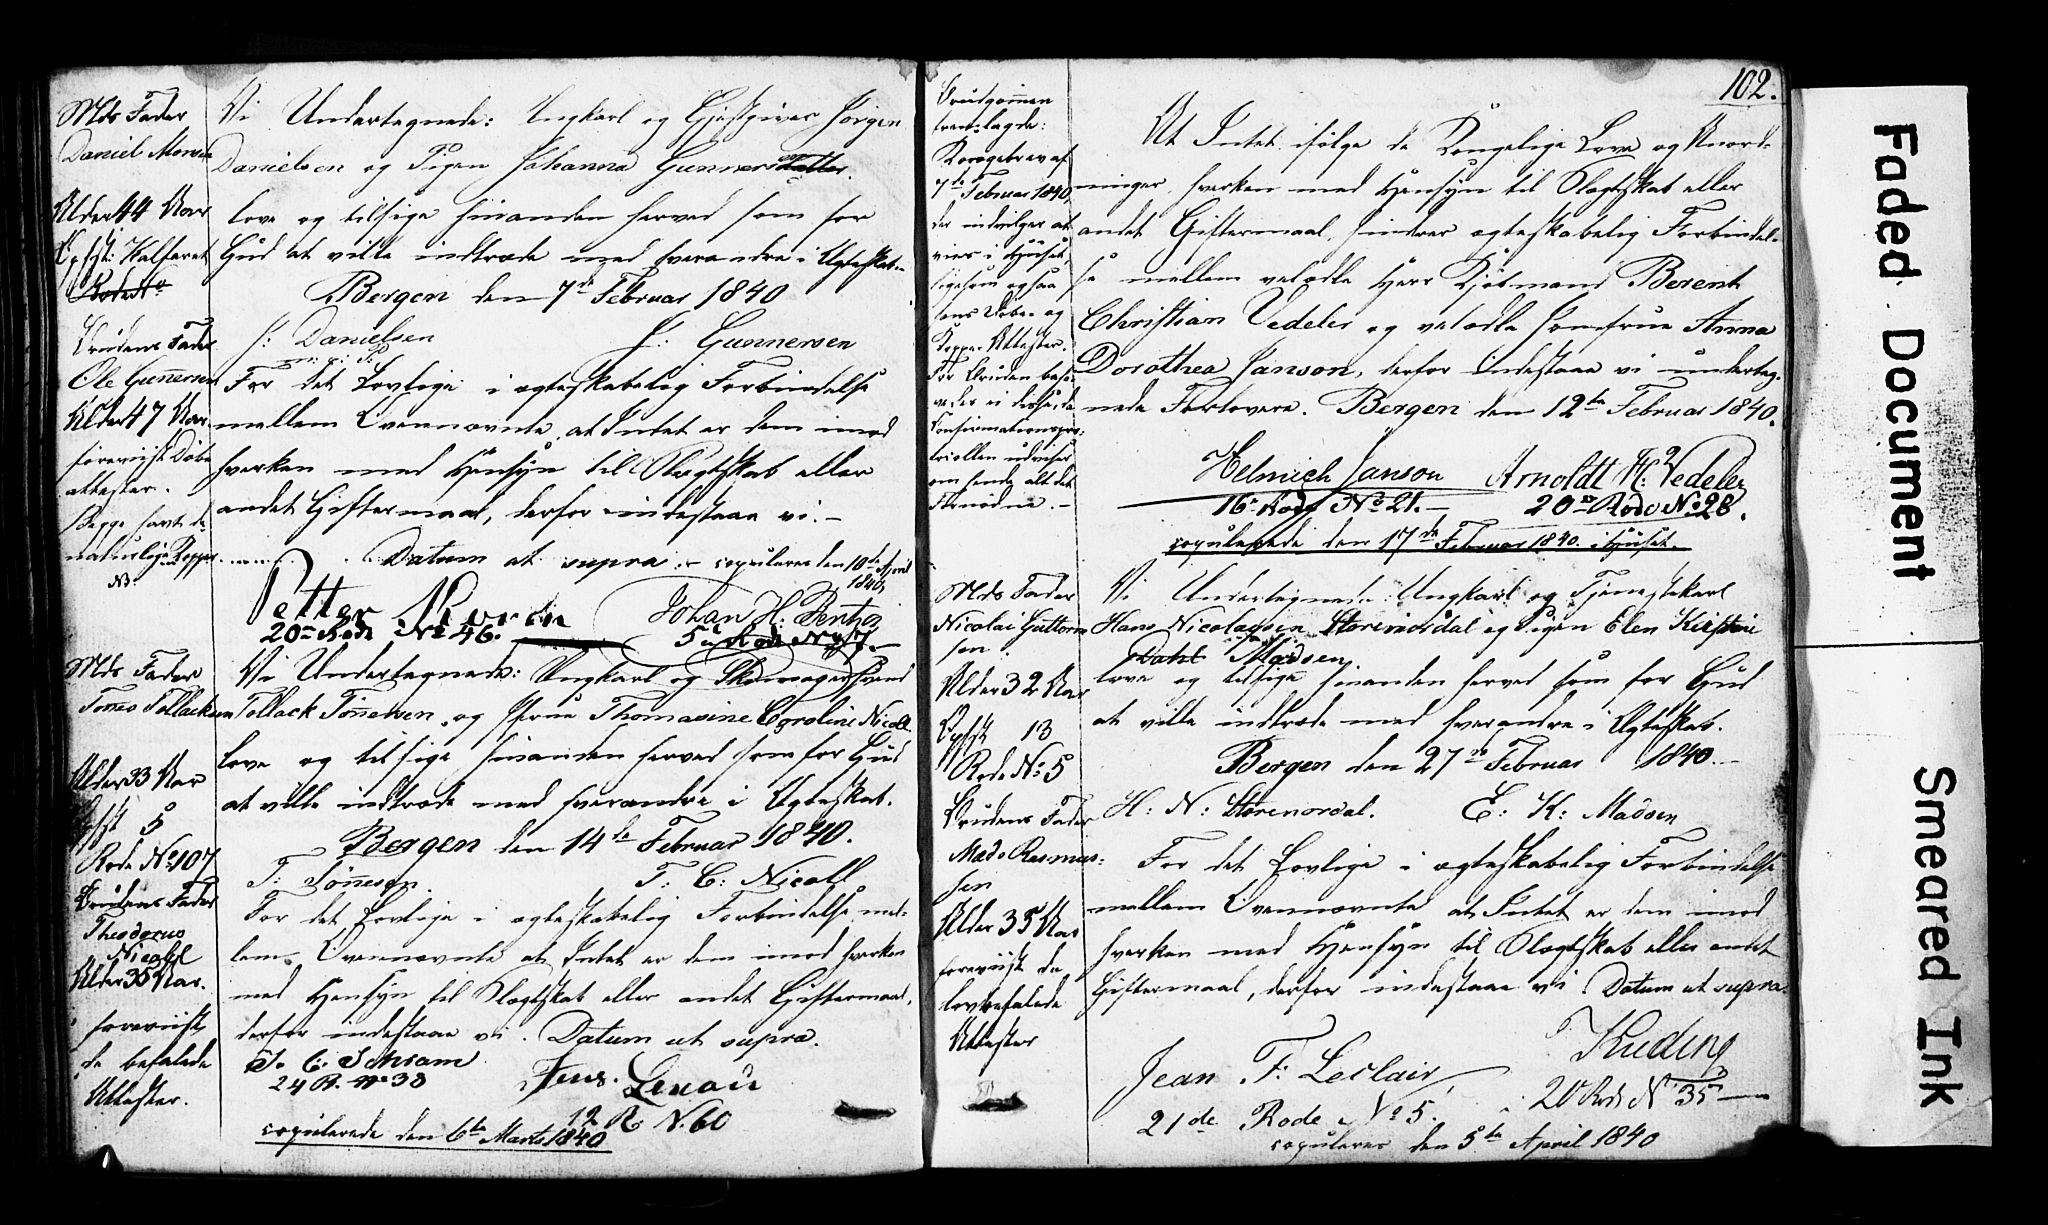 Mds Fader
Daniel Monsen
Alder 44 Aar
Opfst: Kalfaret
Brudens Fader
Ole Gunnersen
Alder 47 Aar
foreviist Døbe
attester.
Begge havt de
naturlige Kopper
Vi Undertegnede: Ungkarl og Gjestgiver Jørgen
Danielsen og Pigen Johanna Gunnersdatter.
love og tilsige hinanden herved som for
Gud at ville indtræde med hverandre i Ægteskab.
Bergen den 7de Februar 1840
J: Danielsen J: Gunnersen
m: p: P:
For det Lovlige i ægteskabelig Forbindelse
mellem Ovennævnte, at Intet er dem imod
hverken med Hensyn til Slægtskab eller
andet Giftermaal, derfor indestaae vi.-
Datum ut supra.- copuleret den 10de April
1840.
Petter Johan H: Pentz
20de Rode No 46. 5te Rode No 47.-
Mds Fader
Tønnes Tollacksen
Alder 33 Aar
Opfst 5
Rode No 107
Brudens Fader
Theodorus
Nicoll
Alder 38 Aar.
foreviist
de befalede
Attester.
Vi Undertegnede: Ungkarl og Skomagersvend
Tollack Tønnesen, og Pigen Thomasine Caroline Nicoll
love og tilsige hinanden herved som for Gud
at ville indtræde med hverandre i Ægteskab.
Bergen den 14de Februar 1840.
T: Tønnesen. T: C: Nicoll
For det Lovlige i ægteskabelig Forbindelse mel-
lem Ovennævnte at Intet er dem imod hverken
med Hensyn til Slægtskab eller andet Giftermaal,
derfor indestaae vi. Datum ut supra.
J. C. Schram
24 R. No 33 Jens.
12 R N. 60
copulerede den 6te Marts 1840
102.
Brudgommen
fremlagde:
Kongebrev af
7de Februar 1840,
der indvilger at
vies i Huset,
ligesom ogsaa
hans Døbe- og
Koppe Attester.
For Bruden
Confirmationspro-
tocollen udviser
om hende alt det
fornødne.-
At Intet ifølge de Kongelige Love og Anord-
ninger, hverken med Hensyn til Slægtskab eller
andet Giftermaal, hindrer ægteskabelig Forbindel-
se mellem velædle Herr Kjøbmand Berent
Christian Vedeler og velædle Jomfrue Anna
Dorothea Janson, derfor indestaae vi underteg-
nede Forlovere. Bergen den 12te Februar 1840.
Helmich Janson Arnoldt H. Vedeler
16de Rode No 21.- 20de Rode No 28.
copulerede den 17de Februar 1840. i Huset.
Mds Fader
Nicolai Guttorm
sen
Alder 32 Aar
Opfst 13
Rode No 5
Brudens Fader
Mads Rasmus-
sen
Alder 35 Aar
foreviist de
lovbefalede
Attester
Vi Undertegnede: Ungkarl og Tjenestekarl
Hans Nicolaysen Storenordal og Pigen Elen Kirstine
Dahl Madsen
love og tilsige hinanden herved som for Gud
at ville indtræde med hverandre i Ægteskab.
Bergen den 27de Februar 1840.-
H: N: Storenordal. E: K: Madsen
For det Lovlige i ægteskabelig Forbindelse
mellem Ovennævnte at Intet er dem imod
hverken med Hensyn til Slægtskab eller andet
Giftermaal, derfor indestaae vi. Datum ut supra.
Jean F: Leclair
21de Rode No 5. 20 Rode N 35
copuleret den 5te April 1840
Faded Document
Smeared Ink